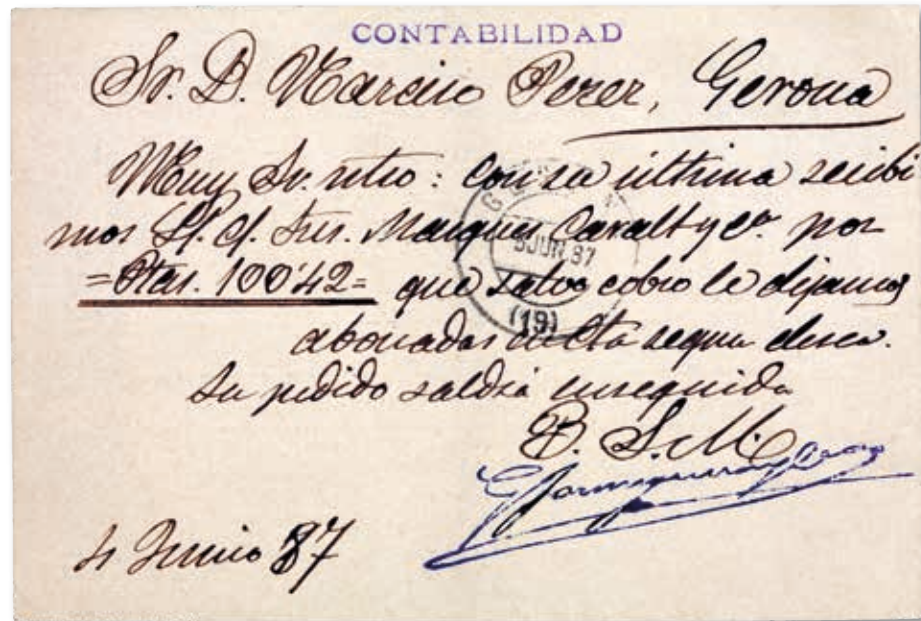 CONTABILIDAD
Sr. D. Narciso Perez, Gerona
Muy Sr. ntro: Con su última recibi
mos L/. c/. Sres. Marques Caralt y Cª. por
=Ptas. 100'42= que salvo cobro le dejamos
abonadas en Cta según desea.
Su pedido saldrá enseguida
B. S. M.
4 Junio 87
5 JUN. 87
(19)